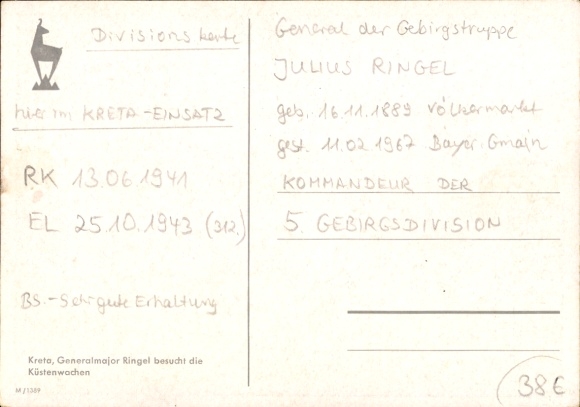 Divisionskarte
hier im KRETA-EINSATZ
RK 13.06.1941
EL 25.10.1943 (312.)
BS.-Sehr gute Erhaltung
Kreta, Generalmajor Ringel besucht die
Küstenwachen
M/1389
General der Gebirgstruppe
JULIUS RINGEL
geb. 16.11.1889 Völkermarkt
gest. 11.02.1967 Bayer. Gmain
KOMMANDEUR DER
5. GEBIRGSDIVISION
38€